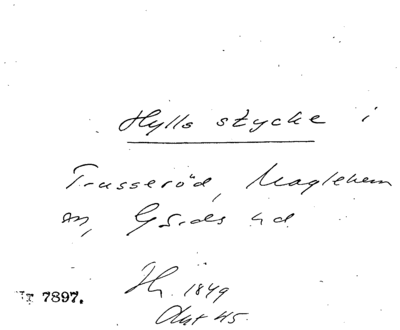 Hylls stycke i
Trusseröd, Maglehem
sn, Gärds hd
7897.
1849
45.